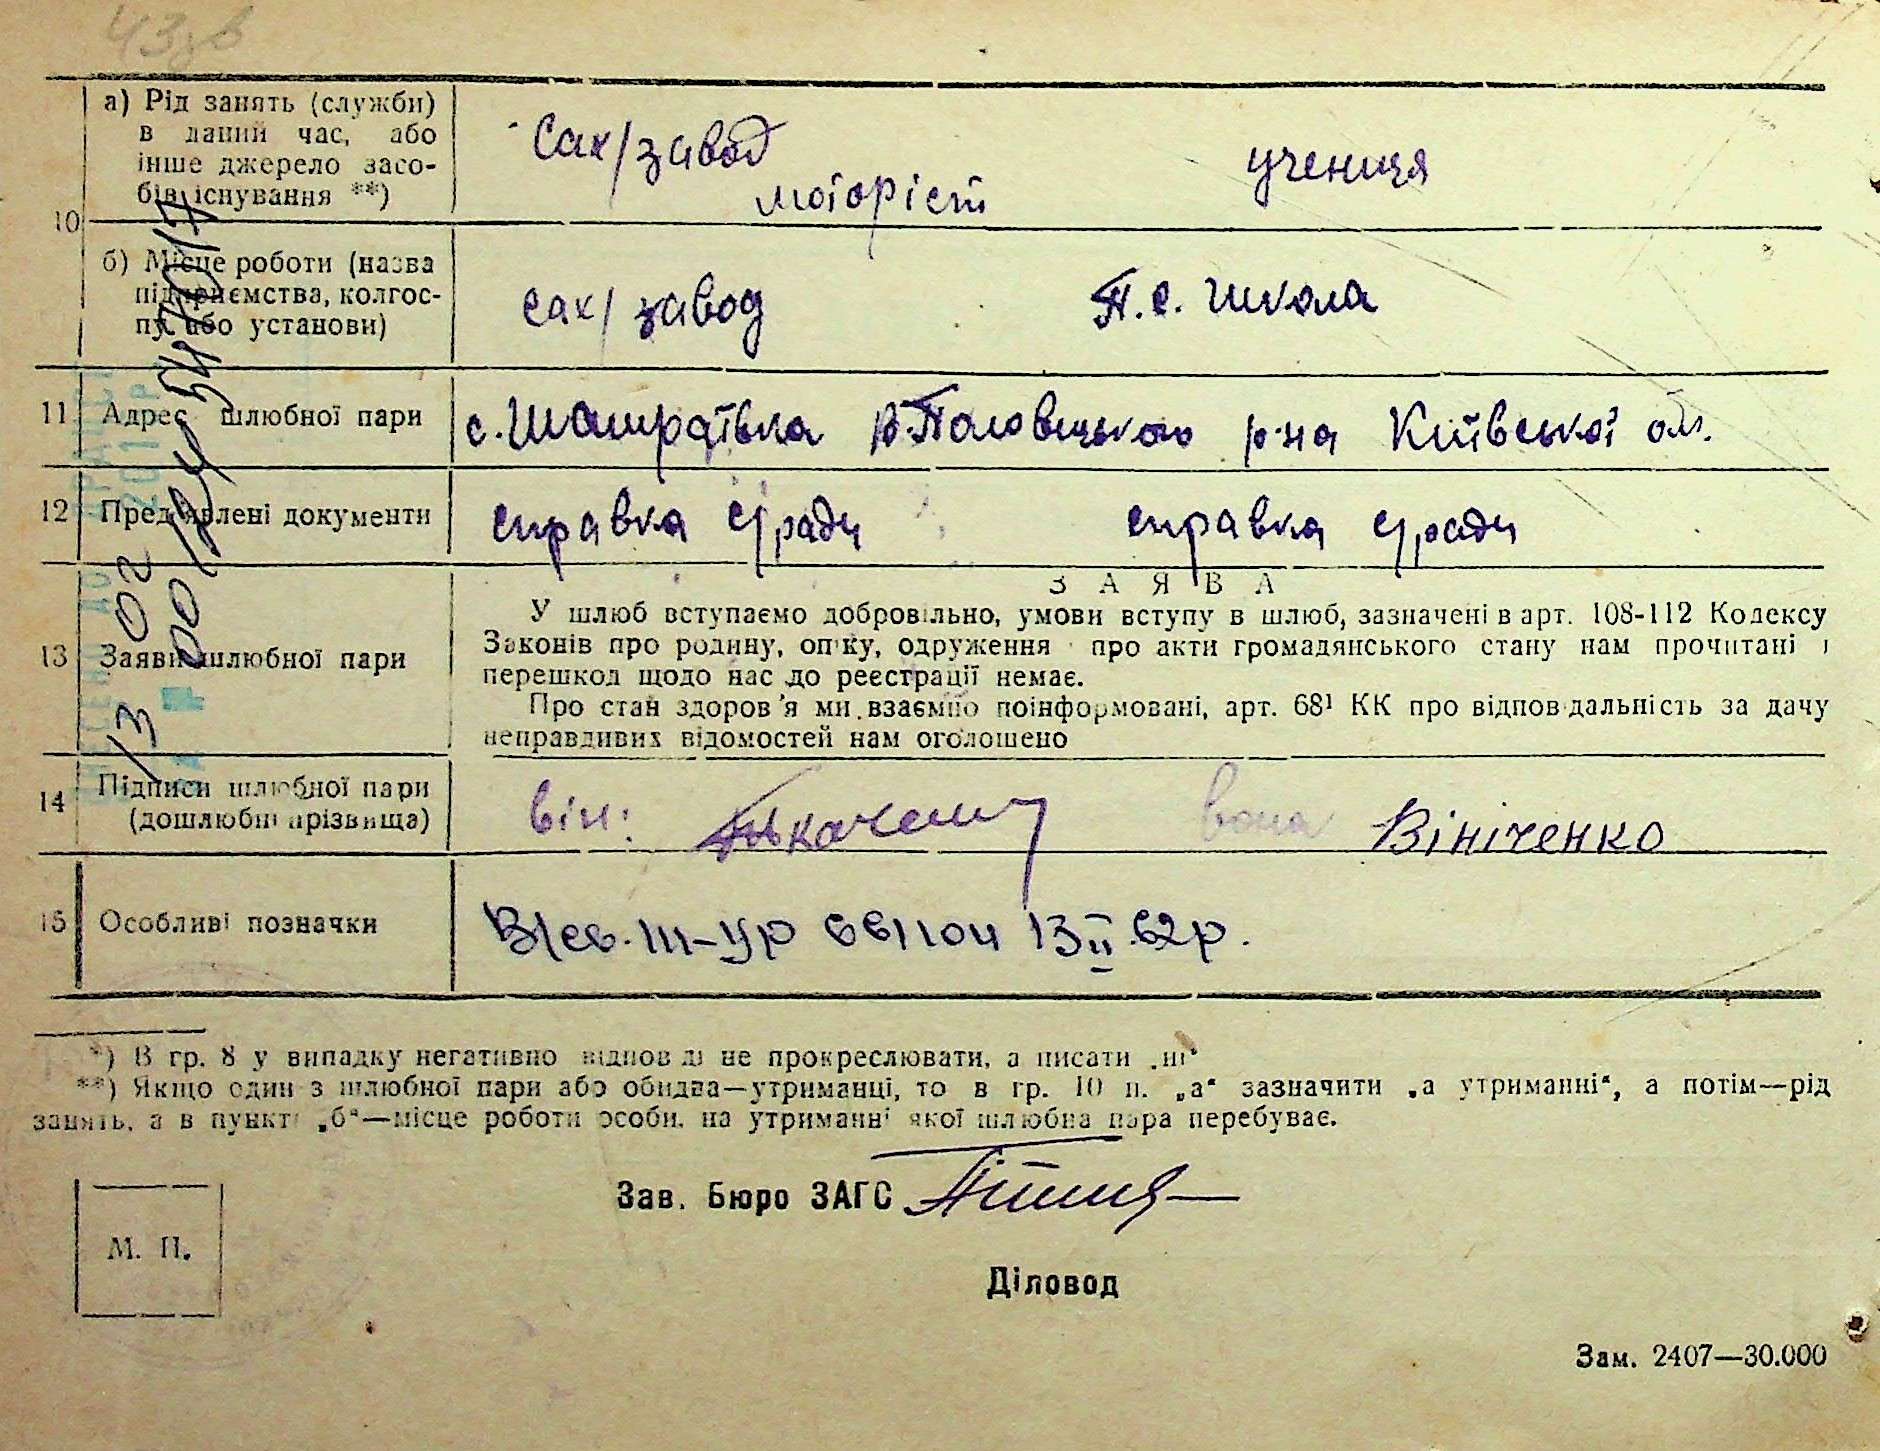 10
а) Рід занять (служби)
в даний час, або
інше джерело засо-
бів існування **)
Сах/завод
моторіст
учениця
б) Місце роботи (назва
підприємства, колгос-
пу або установи)
сах/завод
П.с. школа
11 Адрес шлюбної пари
с. Шамраївка В.Половецького р-на Київської обл.
12 Пред'явлені документи
справка с/ради
справка с/ради
13 Заяви шлюбної пари
ЗАЯВА
У шлюб вступаємо добровільно, умови вступу в шлюб, зазначені в арт. 108-112 Кодексу
Законів про родину, опіку, одруження про акти громадянського стану нам прочитані і
перешкод щодо нас до реєстрації немає.
Про стан здоров'я ми взаємно поінформовані, арт. 68¹ КК про відповідальність за дачу
неправдивих відомостей нам оголошено
14 Підписи шлюбної пари
(дошлюбні прізвища)
він:
вона Вініченко
15 Особливі позначки
В/св. III-УР 061104 13 II.62р.
*) В гр. 8 у випадку негативно відповіді не прокреслювати, а писати „ні“
**) Якщо один з шлюбної пари або обидва—утриманці, то в гр. 10 п. „а“ зазначити „а утриманні“, а потім—рід
занять, а в пункті „б“—місце роботи особи, на утриманні якої шлюбна пара перебуває.
Зав. Бюро ЗАГС
М. П.
Діловод
Зам. 2407—30.000